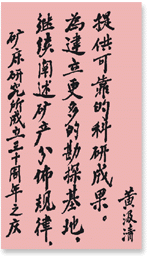 提供可靠的科研成果。
为建立更多的勘探基地，
继续阐述矿产分佈规律，
矿床研究所成立三十周年之庆
黄汲清